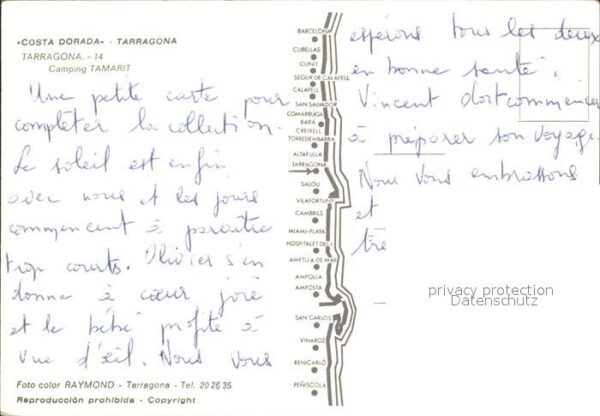 «COSTA DORADA» · TARRAGONA
TARRAGONA. - 14
Camping TAMARIT
Une petite carte pour
completer la collection.
Le soleil est enfin
avec nous et les jours
commencent à paraître
trop courts. Olivier s'en
donne à cœur joie
et le bébé profite à
vue d'œil. Nous vous
Foto color RAYMOND - Tarragona - Tel. 20 26 35
Reproducción prohibida - Copyright
BARCELONA
CUBELLAS
CUNIT
SEGUR DE CALAFELL
CALAFELL
SAN SALVADOR
COMARRUGA
BARÁ
CREIXELL
TORREDEMBARRA
ALTAFULLA
TARRAGONA
SALOU
VILAFORTUNY
CAMBRILS
MIAMI-PLAYA
HOSPITALET DEL I.
AMETLLA DE MAR
AMPOLLA
AMPOSTA
SAN CARLOS
VINAROZ
BENICARLÓ
PEÑISCOLA
espérons tous les deux
en bonne santé.
Vincent doit commencer
à préparer son voyage.
Nous vous embrassons
et
tre
privacy protection
Datenschutz